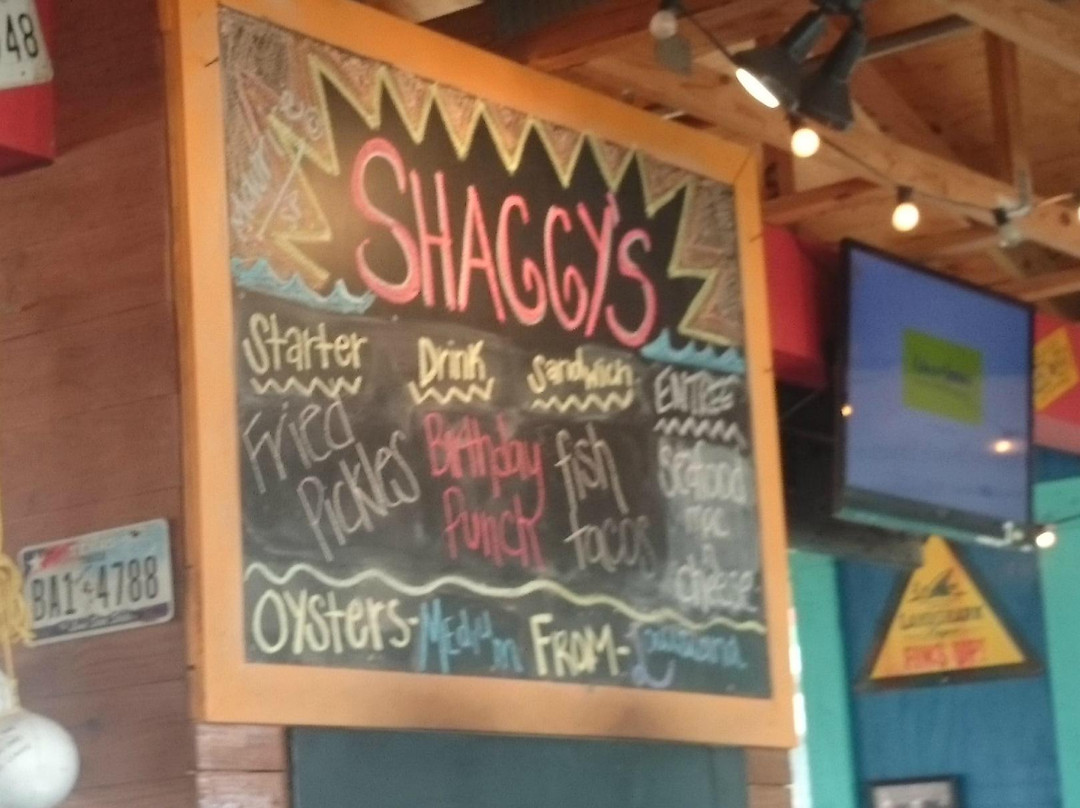 48
SHAGGY'S
Starter
Fried
Pickles
Drink
Birthday
Punch
Sandwich
fish
tacos
ENTREE
Seafood
mac
&
cheese
OYSTERS- Medium FROM- Louisiana
BA1 4788
LANDSHARK
FINS UP!